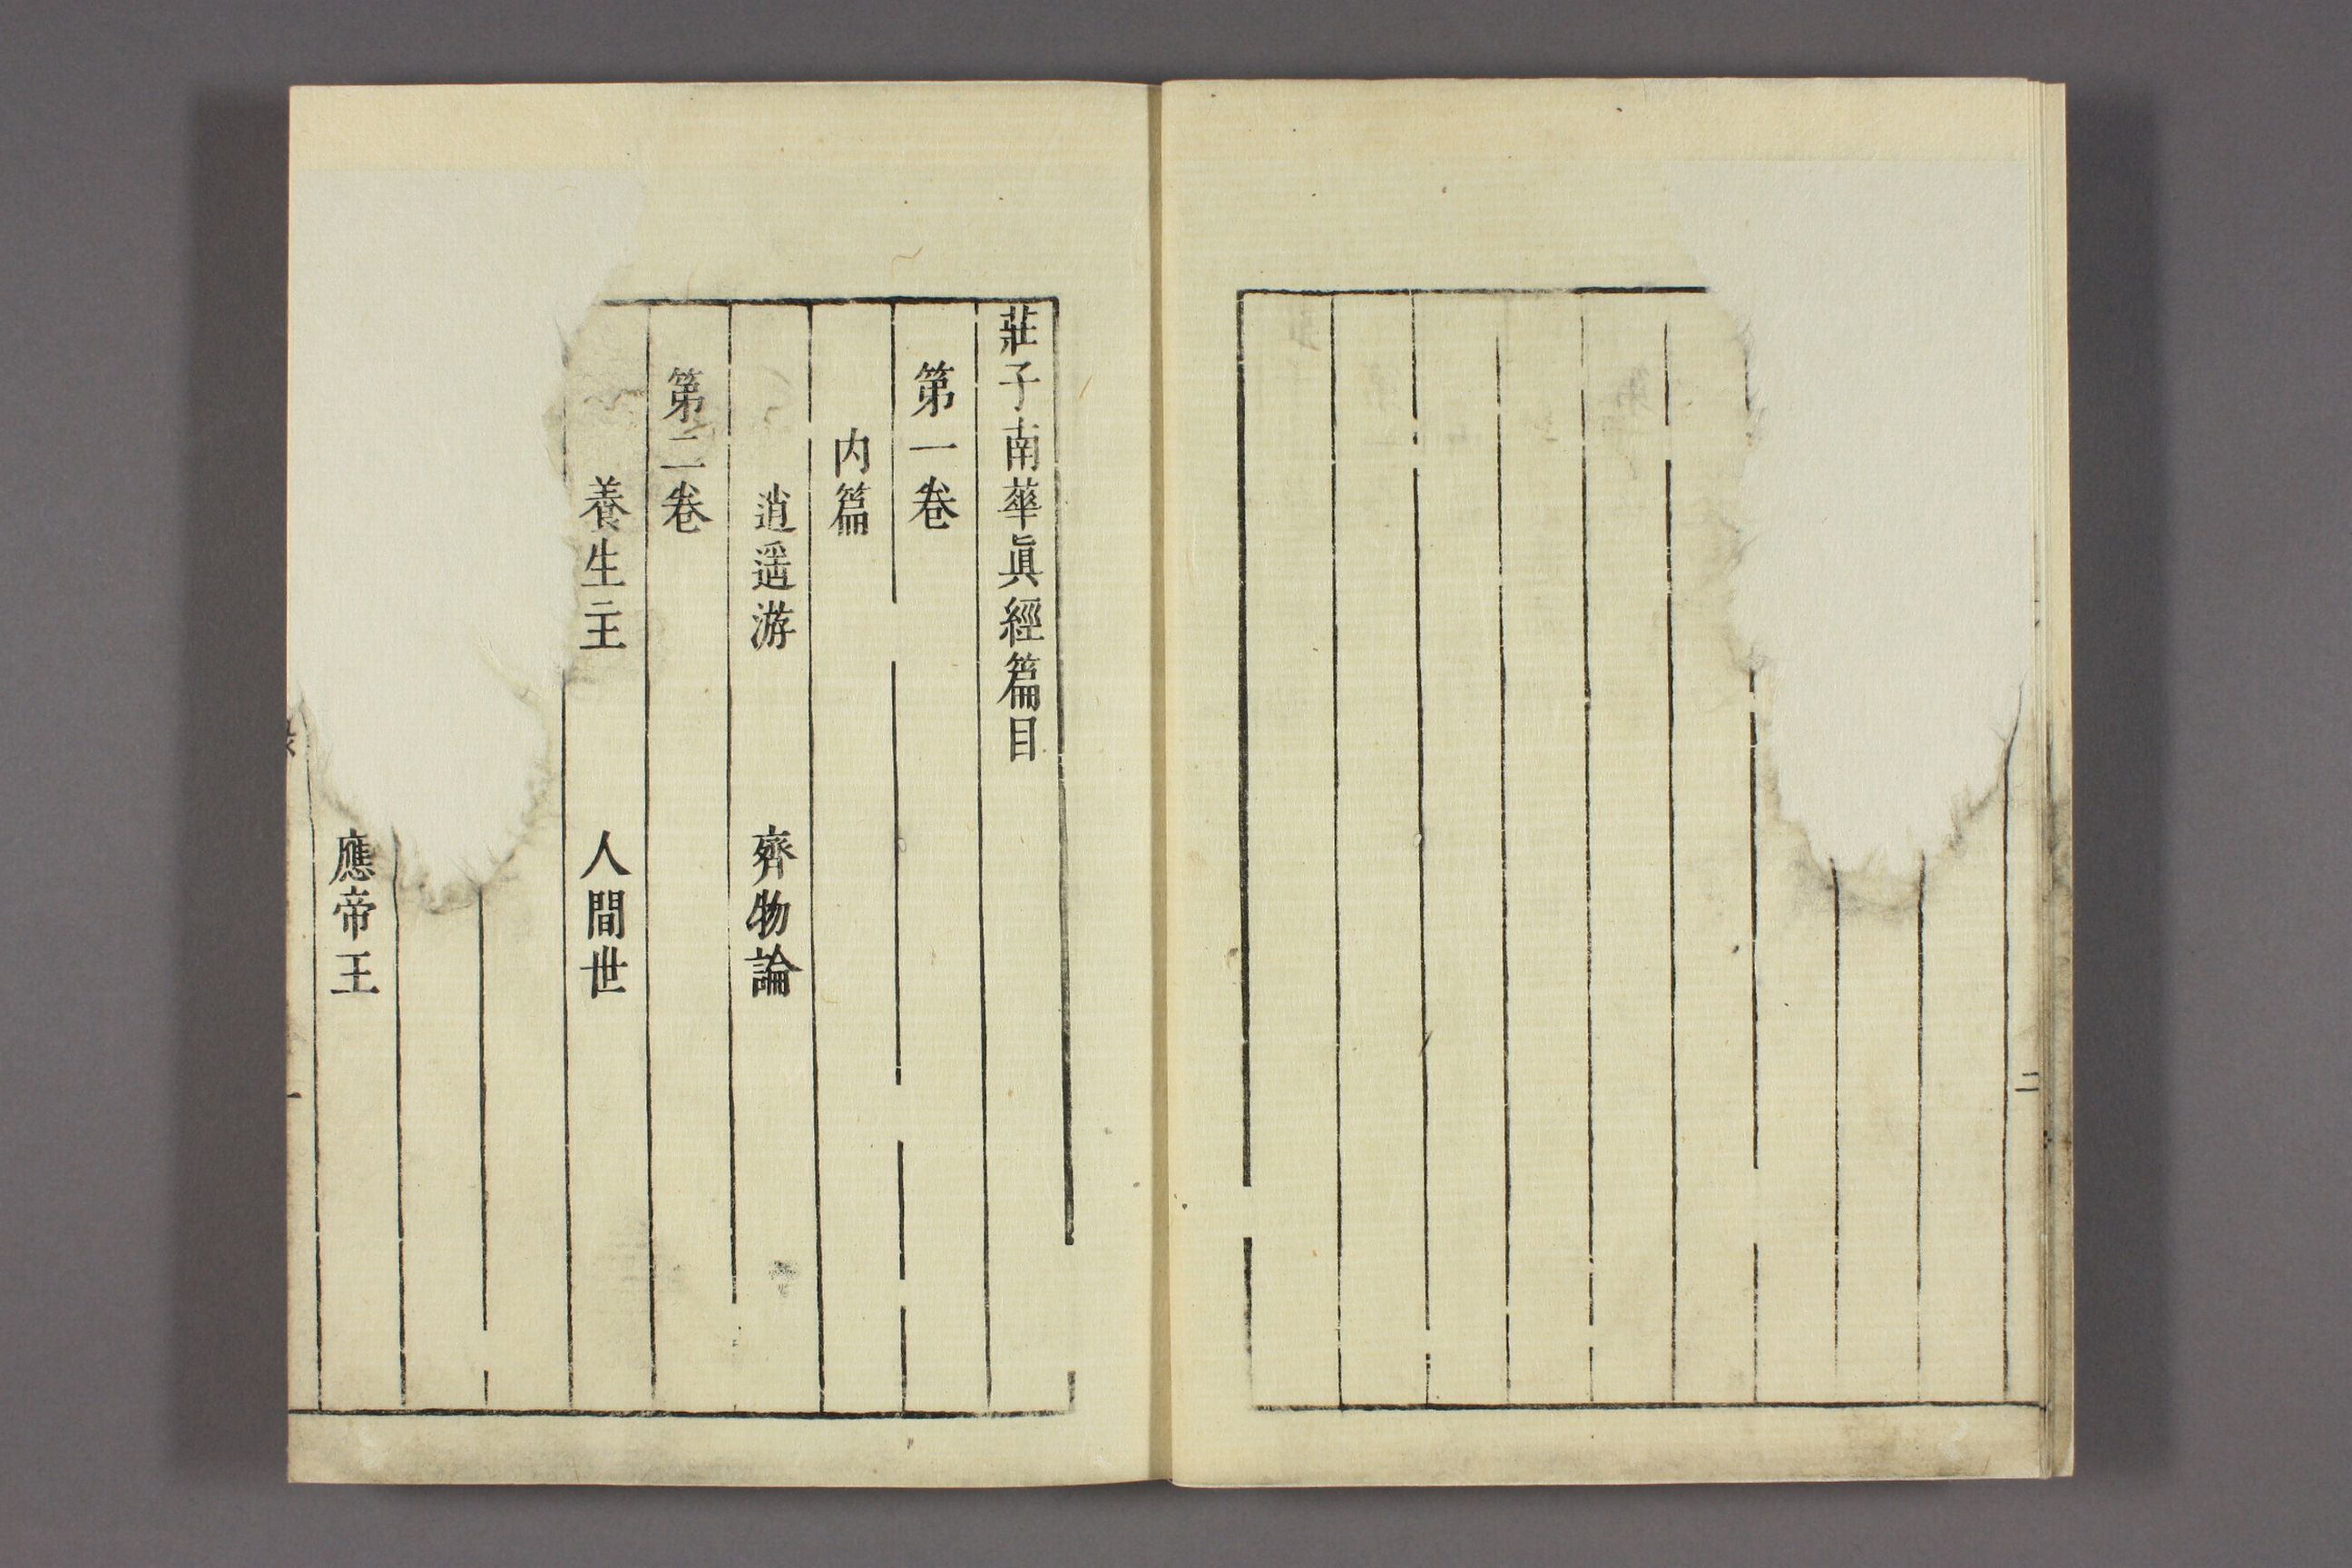 二
莊子南華眞經篇目
第一卷
内篇
逍遥游 齊物論
第二卷
養生主 人間世
應帝王
一